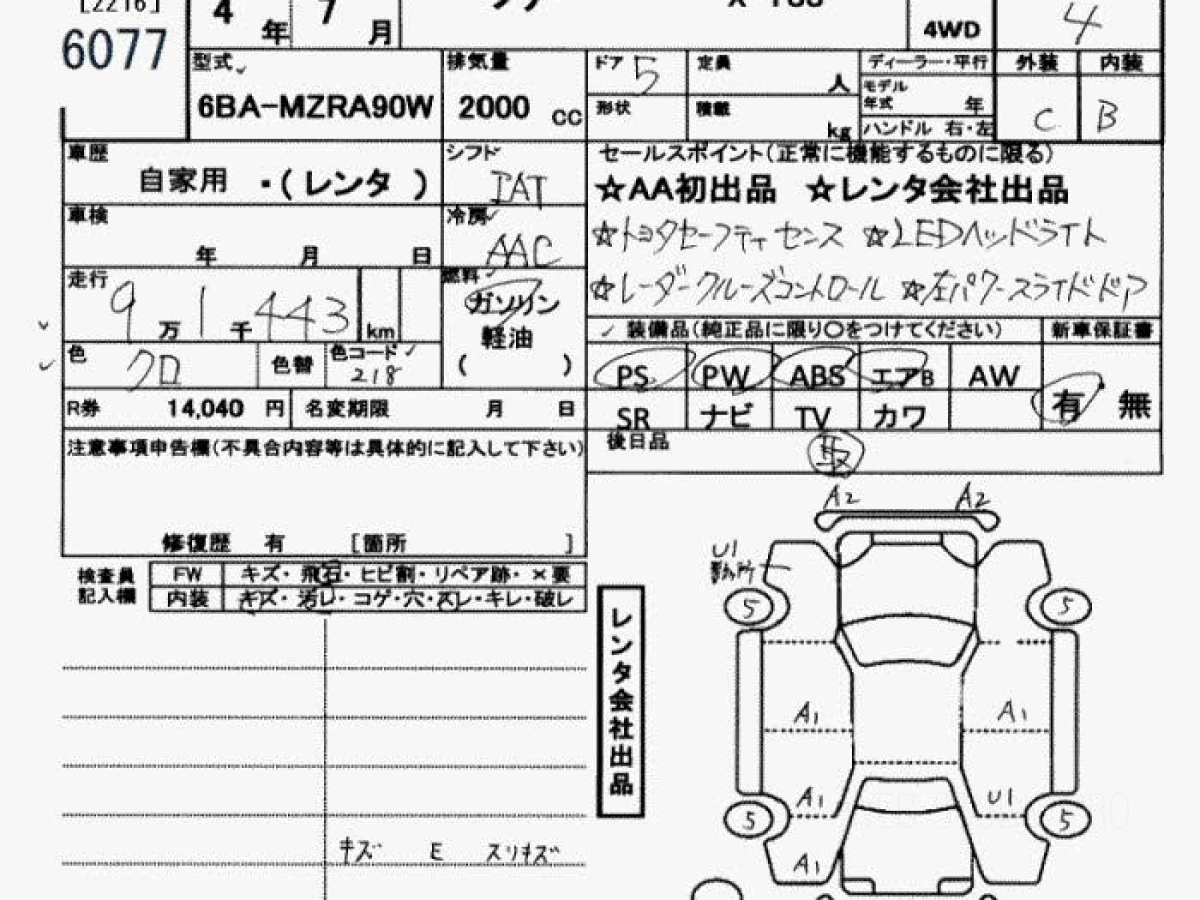 [2216]
6077
4 年 7 月
4WD
4
型式
6BA-MZRA90W
排気量
2000 cc
ドア 5
形状
定員 人
積載 kg
ディーラー・平行
モデル年式 年
ハンドル 右・左
外装 内装
C B
車歴
自家用 ・(レンタ )
シフト
IAT
車検
年 月 日
冷房
AAC
走行
9 万 1 千 443 km
燃料
ガソリン
軽油
( )
色 クロ
色替
色コード
218
R券 14,040 円
名変期限 月 日
セールスポイント(正常に機能するものに限る)
☆AA初出品 ☆レンタ会社出品
☆トヨタセーフティセンス ☆LEDヘッドライト
☆レーダークルーズコントロール ☆左パワースライドドア
装備品(純正品に限り○をつけてください)
新車保証書
PS PW ABS エアB AW
SR ナビ TV カワ
有 無
後日品
取
注意事項申告欄(不具合内容等は具体的に記入して下さい)
修復歴 有 [箇所 ]
検査員記入欄
FW キズ・飛石・ヒビ割・リペア跡・×要
内装 キズ・汚レ・コゲ・穴・スレ・キレ・破レ
キズ E スリキズ
レンタ会社出品
A2 A2
U1
5 5
A1 A1
A1 U1
5 5
A1